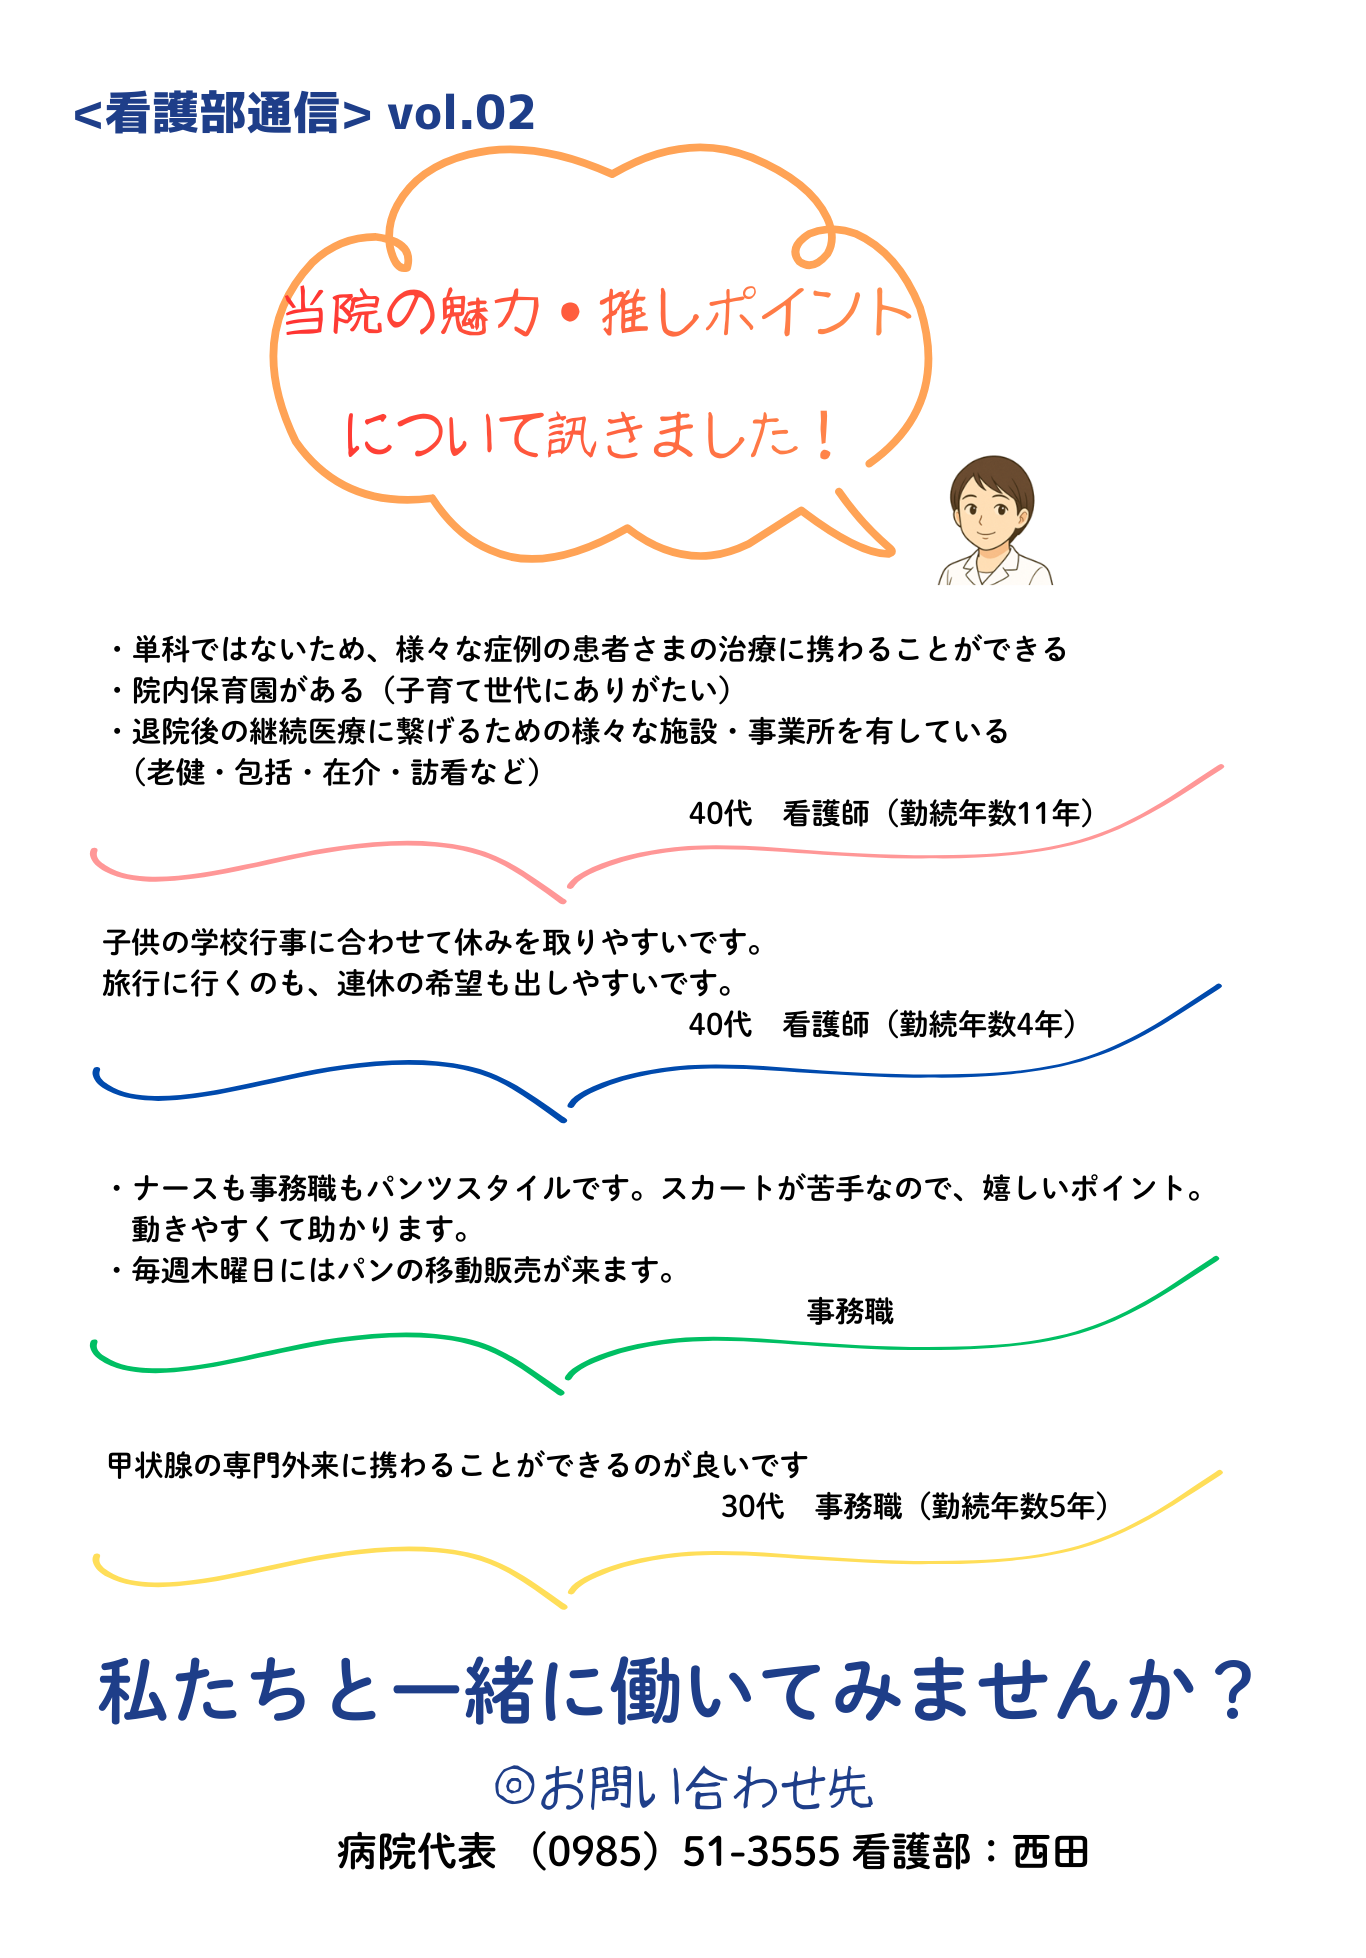 <看護部通信> vol.02
当院の魅力・推しポイント
について訊きました！
・単科ではないため、様々な症例の患者さまの治療に携わることができる
・院内保育園がある（子育て世代にありがたい）
・退院後の継続医療に繋げるための様々な施設・事業所を有している
（老健・包括・在介・訪看など）
40代　看護師（勤続年数11年）
子供の学校行事に合わせて休みを取りやすいです。
旅行に行くのも、連休の希望も出しやすいです。
40代　看護師（勤続年数4年）
・ナースも事務職もパンツスタイルです。スカートが苦手なので、嬉しいポイント。
動きやすくて助かります。
・毎週木曜日にはパンの移動販売が来ます。
事務職
甲状腺の専門外来に携わることができるのが良いです
30代　事務職（勤続年数5年）
私たちと一緒に働いてみませんか？
◎お問い合わせ先
病院代表 （0985）51-3555 看護部：西田